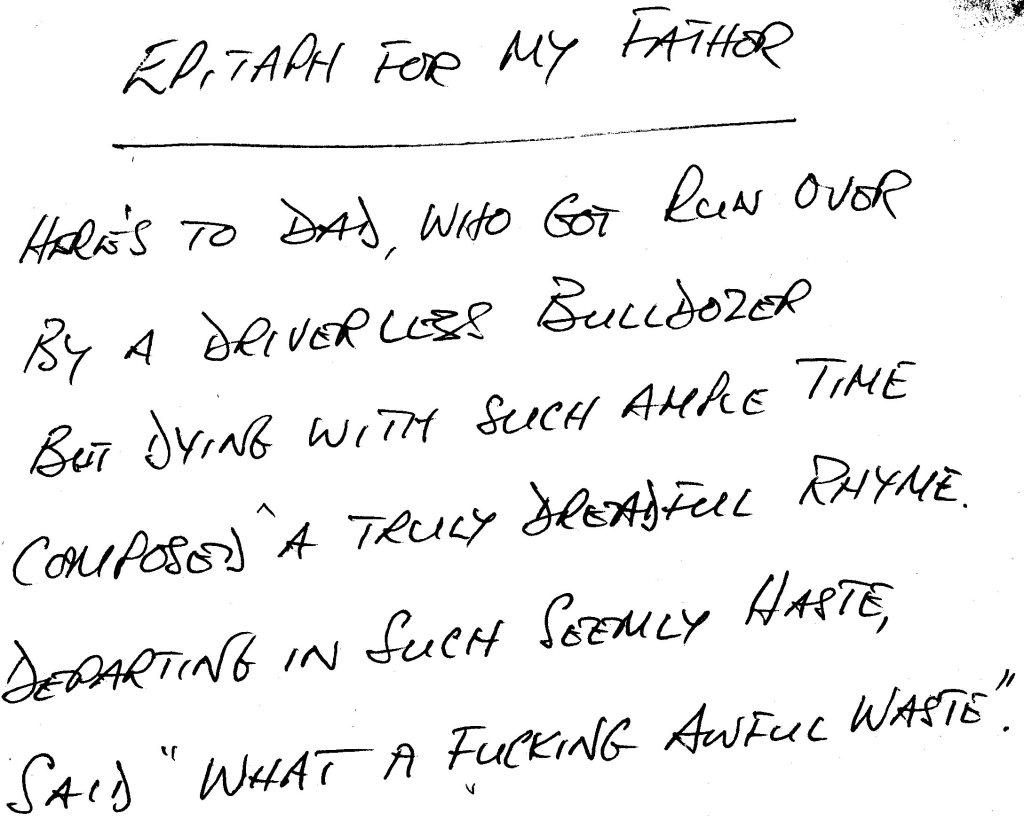 EPITAPH FOR MY FATHER
HERE'S TO DAD, WHO GOT RUN OVER
BY A DRIVERLESS BULLDOZER
BUT DYING WITH SUCH AMPLE TIME
COMPOSED ^ A TRULY DREADFUL RHYME.
DEPARTING IN SUCH SEEMLY HASTE,
SAID "WHAT A FUCKING AWFUL WASTE".